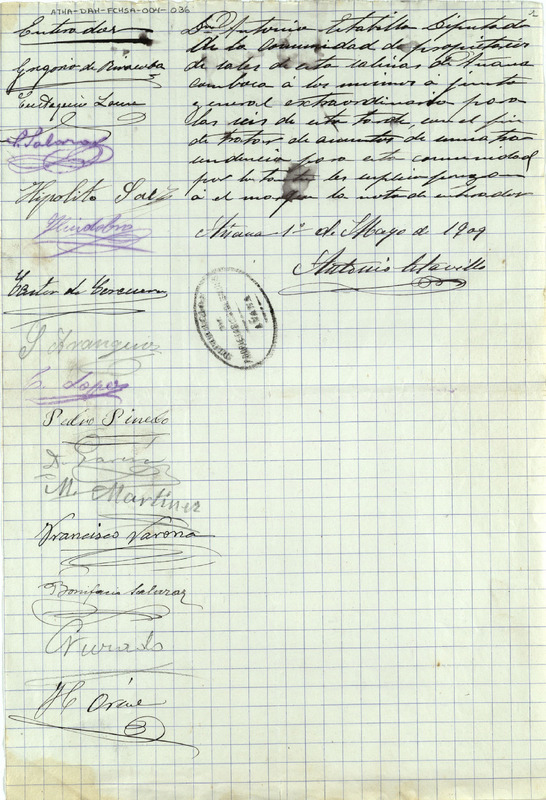 ATHA-DAH-FCHSA-004-036
2
Enterados
Gregorio de
Eustaquio
P. Salazar
Hipolito Saez
Castor de
S Aranguiz
C. Lopez
Pedro Pinedo
D. Garcia
M. Martinez
Francisco Varona
Bonifacio Salazar
Dn. Antonio Diputado
de la Comunidad de propietarios
de sales de esta salinas de Añana
combaca a los mismos á junta
general extraordinaria para
las seis de esta tarde, con el fin
de tratar de asuntos de suma tras
cendencia para esta comunidad
por lo tanto les suplico pongan
á el margen la nota de enterados
Añana 1º de Mayo de 1909
Antonio
AÑANA